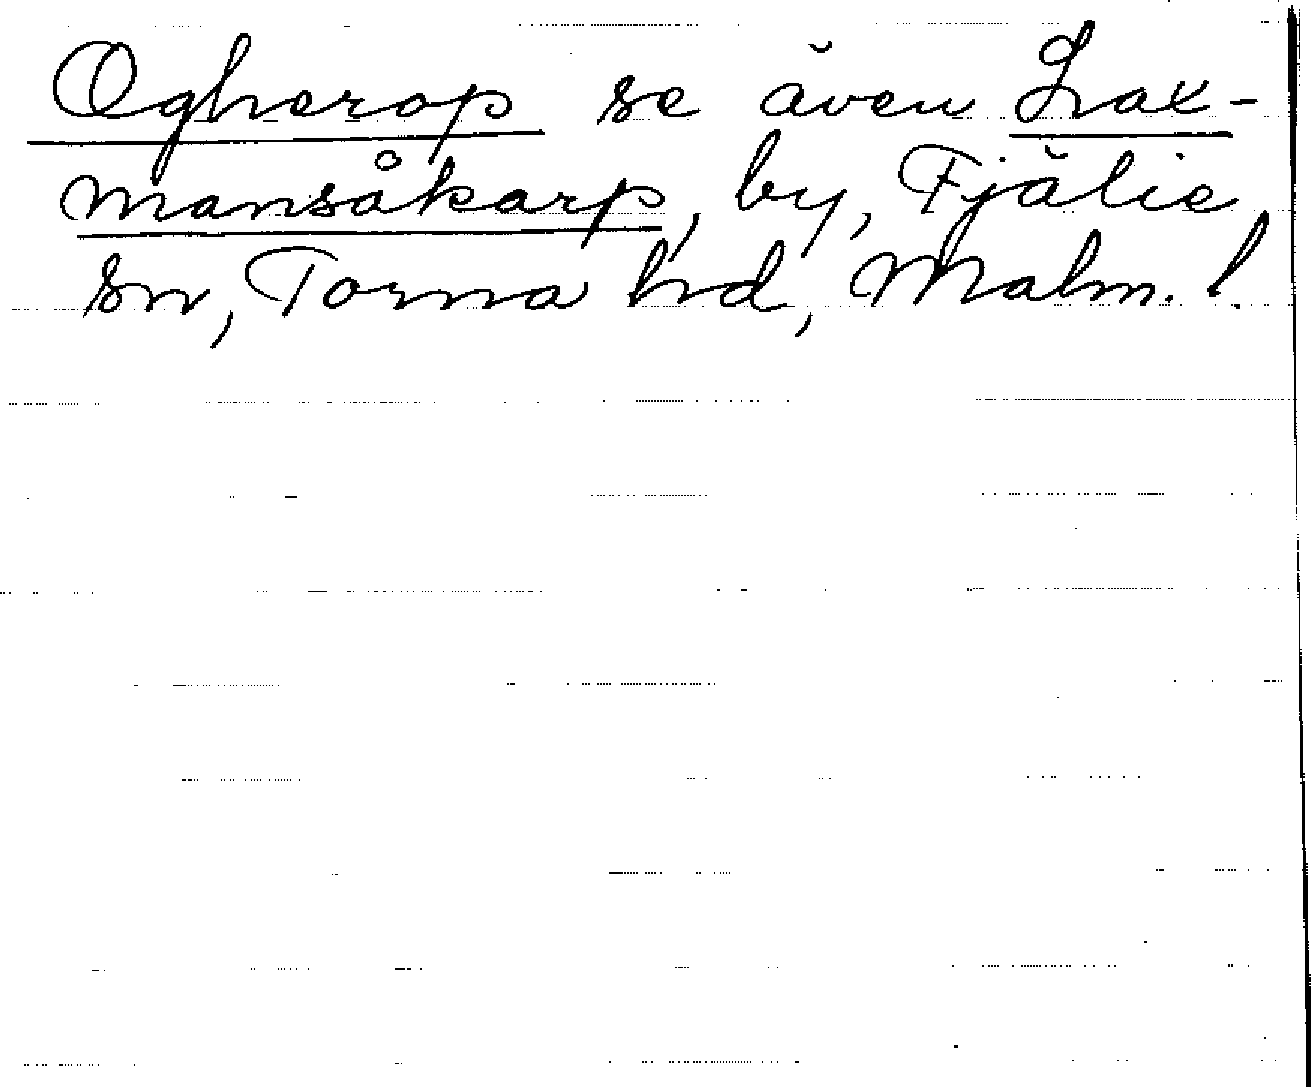 Ogherop se även Lax-
mansåkarp, by, Fjälie
sn, Torna hd, Malm. l.